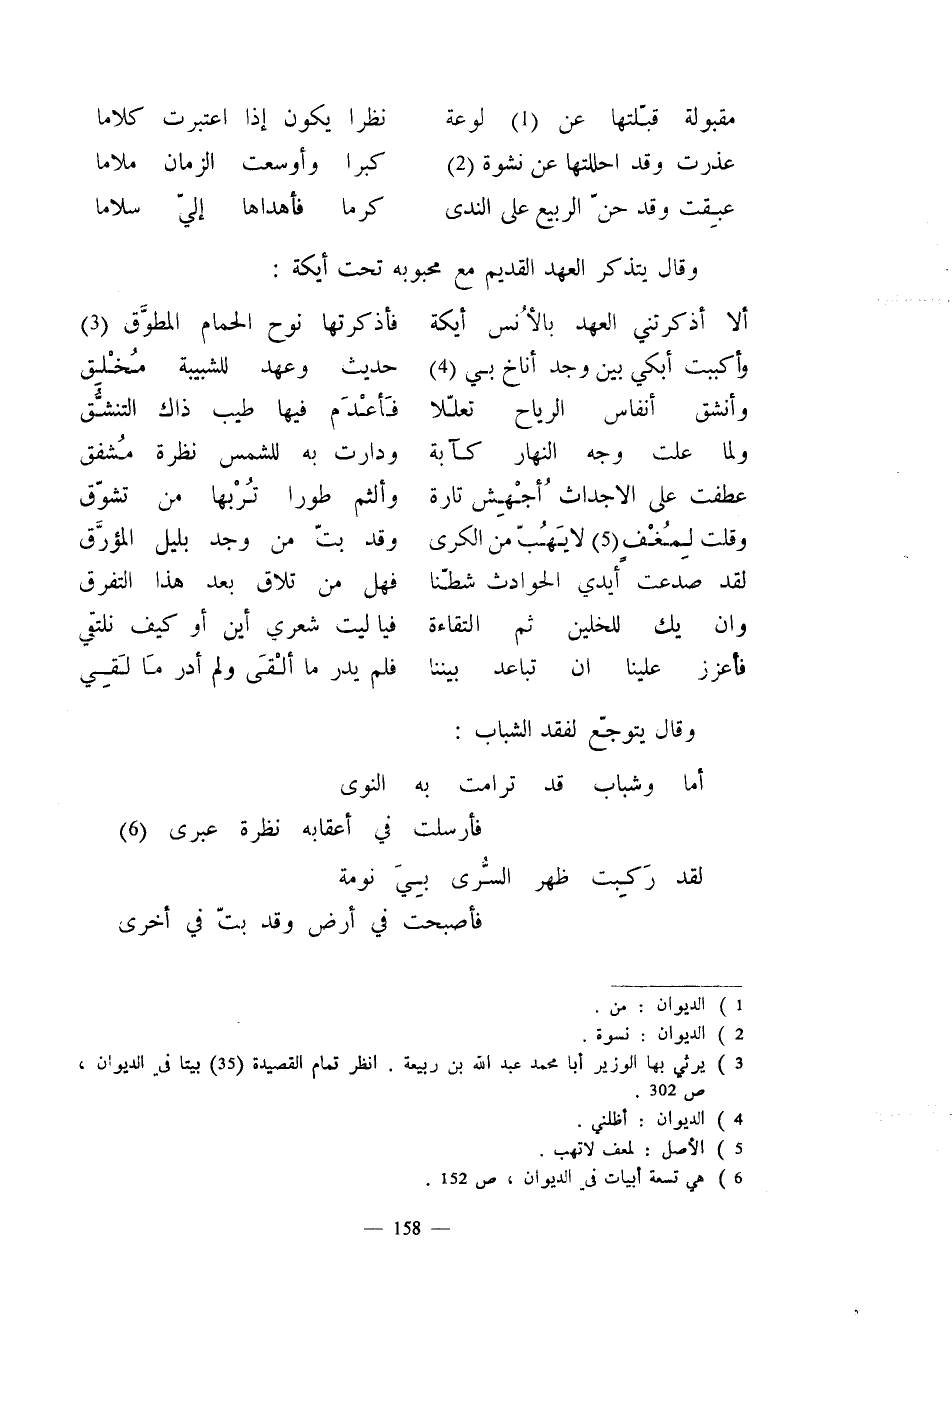 مقبولة قبّلتها عن (1) لوعة نظرا يكون إذا اعتبرت كلاما
عذرت وقد احللتها عن نشوة (2) كبرا وأوسعت الزمان ملاما
عبِقت وقد حنّ الربيع على الندى كرما فأهداها إليّ سلاما
وقال يتذكر العهد القديم مع محبوبه تحت أيكة :
ألا أذكرتني العهد بالأُنس أيكة فأذكرتها نوح الحمام المطوَّق (3)
وأكببت أبكي بين وجد أناخ بي (4) حديث وعهد للشبيبة مُخْلِق
وأنشق أنفاس الرياح تعلّلا فأَعْدَم فيها طيب ذاك التنشُّق
ولما علت وجه النهار كآبة ودارت به للشمس نظرة مُشفق
عطفت على الاجداث أُجْهِش تارة وألثم طورا تُرْبها من تشوّق
وقلت لِمُغْفٍ (5) لايَهُبّ من الكرى وقد بتّ من وجد بليل المؤرَّق
لقد صدعت أيدي الحوادث شطّنا فهل من تلاق بعد هذا التفرق
وان يك للخلين ثم التقاءة فيا ليت شعري أين أو كيف نلتقي
فأعزز علينا ان تباعد بيننا فلم يدر ما ألْقَى ولم أدر مَا لَقِي
وقال يتوجّع لفقد الشباب :
أما وشباب قد ترامت به النوى
فأرسلت في أعقابه نظرة عبرى (6)
لقد رَكِبت ظهر السُّرى بِيَ نومة
فأصبحت في أرض وقد بتّ في أخرى
1 ) الديوان : من .
2 ) الديوان : نسوة .
3 ) يرثي بها الوزير أبا محمد عبد الله بن ربيعة . انظر تمام القصيدة (35) بيتا في الديوان ،
ص 302 .
4 ) الديوان : أظلني .
5 ) الأصل : لمعف لاتهب .
6 ) هي تسعة أبيات في الديوان ، ص 152 .
— 158 —